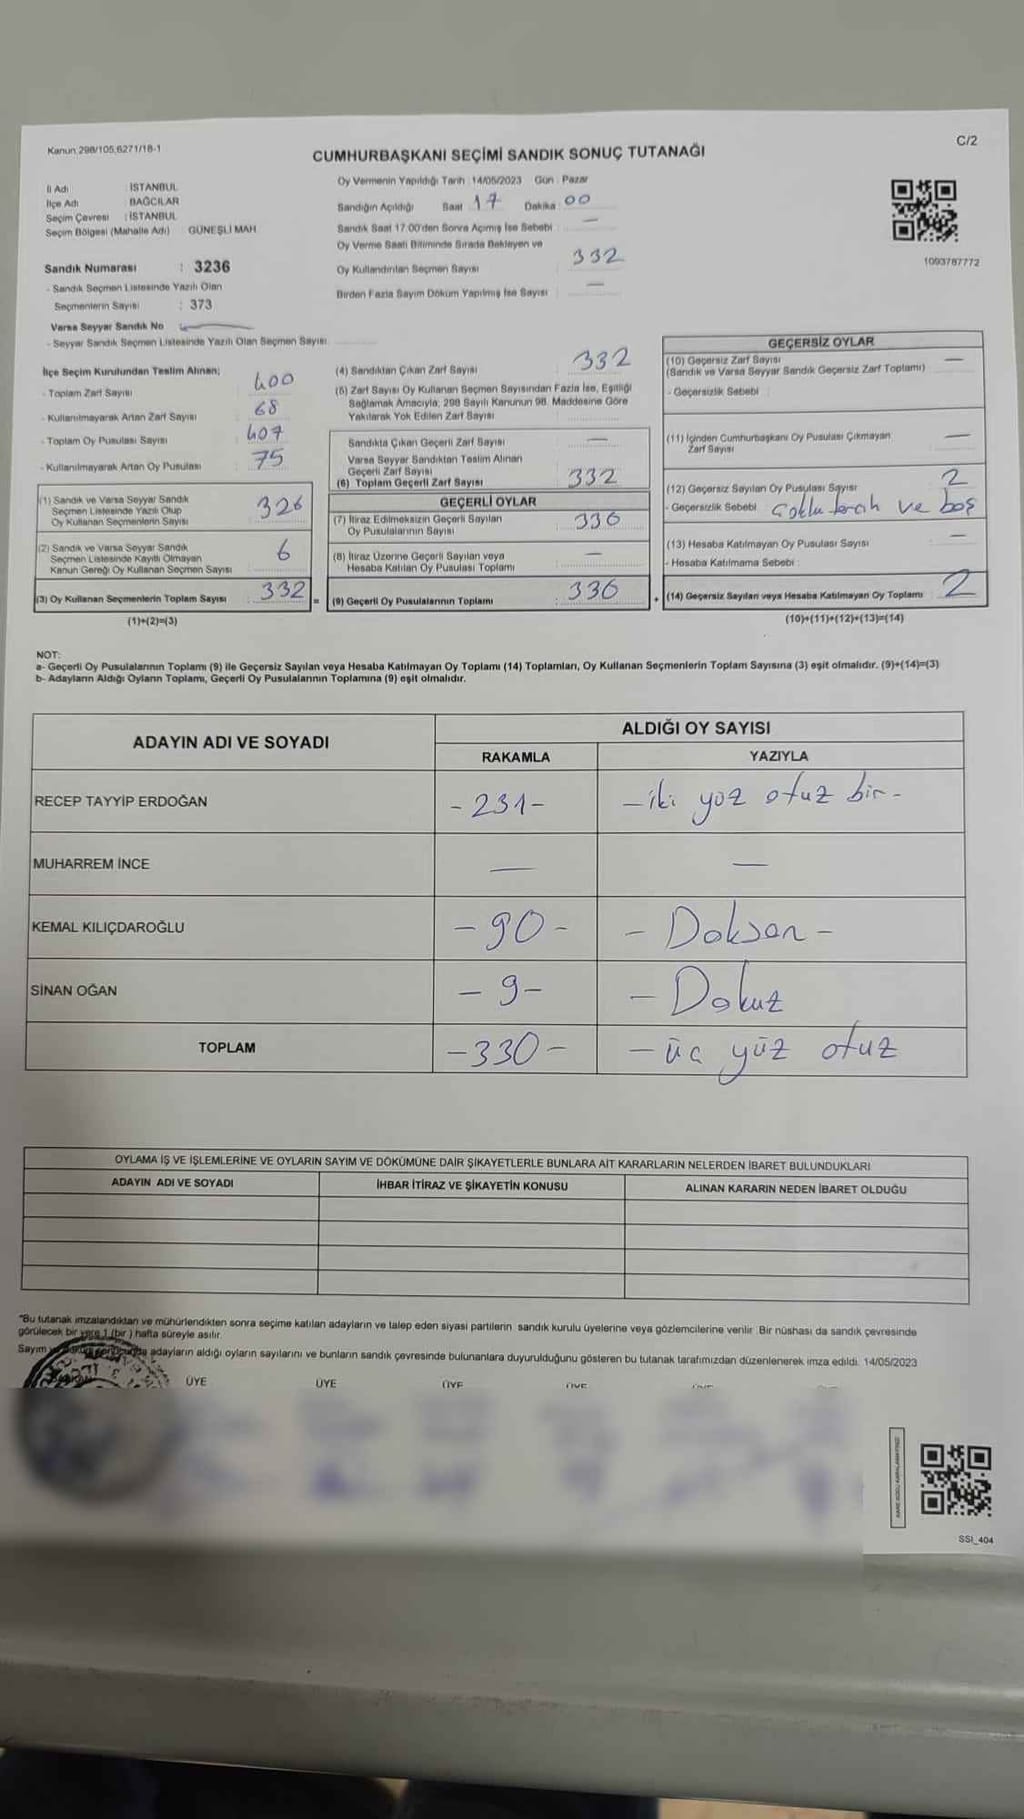 Kanun 298/105,6271/18-1
C/2
CUMHURBAŞKANI SEÇİMİ SANDIK SONUÇ TUTANAĞI
İl Adı : İSTANBUL
İlçe Adı : BAĞCILAR
Seçim Çevresi : İSTANBUL
Seçim Bölgesi (Mahalle Adı) GÜNEŞLİ MAH.
Sandık Numarası : 3236
- Sandık Seçmen Listesinde Yazılı Olan
Seçmenlerin Sayısı : 373
Varsa Seyyar Sandık No
- Seyyar Sandık Seçmen Listesinde Yazılı Olan Seçmen Sayısı
Oy Vermenin Yapıldığı Tarih : 14/05/2023 Gün : Pazar
Sandığın Açıldığı Saat 17 Dakika 00
Sandık Saat 17:00'den Sonra Açımış İse Sebebi : —
Oy Verme Saati Bitiminde Sırada Bekleyen ve
Oy Kullandırılan Seçmen Sayısı 332
Birden Fazla Sayım Döküm Yapılmış İse Sayısı : —
1093787772
İlçe Seçim Kurulundan Teslim Alınan;
- Toplam Zarf Sayısı 400
- Kullanılmayarak Artan Zarf Sayısı 68
- Toplam Oy Pusulası Sayısı 407
- Kullanılmayarak Artan Oy Pusulası 75
(1) Sandık ve Varsa Seyyar Sandık
Seçmen Listesinde Yazılı Olup
Oy Kullanan Seçmenlerin Sayısı 326
(2) Sandık ve Varsa Seyyar Sandık
Seçmen Listesinde Kayıtlı Olmayan
Kanun Gereği Oy Kullanan Seçmen Sayısı 6
(3) Oy Kullanan Seçmenlerin Toplam Sayısı 332 =
(1)+(2)=(3)
(4) Sandıktan Çıkan Zarf Sayısı 332
(5) Zarf Sayısı Oy Kullanan Seçmen Sayısından Fazla İse, Eşitliği
Sağlamak Amacıyla; 298 Sayılı Kanunun 98. Maddesine Göre
Yakılarak Yok Edilen Zarf Sayısı
Sandıkta Çıkan Geçerli Zarf Sayısı —
Varsa Seyyar Sandıktan Teslim Alınan
Geçerli Zarf Sayısı
(6) Toplam Geçerli Zarf Sayısı 332
GEÇERLİ OYLAR
(7) İtiraz Edilmeksizin Geçerli Sayılan
Oy Pusulalarının Sayısı 330
(8) İtiraz Üzerine Geçerli Sayılan veya
Hesaba Katılan Oy Pusulası Toplamı —
(9) Geçerli Oy Pusulalarının Toplamı : 330 +
GEÇERSİZ OYLAR
(10) Geçersiz Zarf Sayısı —
(Sandık ve Varsa Seyyar Sandık Geçersiz Zarf Toplamı)
- Geçersizlik Sebebi :
(11) İçinden Cumhurbaşkanı Oy Pusulası Çıkmayan
Zarf Sayısı —
(12) Geçersiz Sayılan Oy Pusulası Sayısı 2
- Geçersizlik Sebebi Çoklu tercih ve boş
(13) Hesaba Katılmayan Oy Pusulası Sayısı —
- Hesaba Katılmama Sebebi :
(14) Geçersiz Sayılan veya Hesaba Katılmayan Oy Toplamı 2
(10)+(11)+(12)+(13)=(14)
NOT:
a- Geçerli Oy Pusulalarının Toplamı (9) ile Geçersiz Sayılan veya Hesaba Katılmayan Oy Toplamı (14) Toplamları, Oy Kullanan Seçmenlerin Toplam Sayısına (3) eşit olmalıdır. (9)+(14)=(3)
b- Adayların Aldığı Oyların Toplamı, Geçerli Oy Pusulalarının Toplamına (9) eşit olmalıdır.
ADAYIN ADI VE SOYADI
ALDIĞI OY SAYISI
RAKAMLA YAZIYLA
RECEP TAYYİP ERDOĞAN -231- -iki yüz otuz bir-
MUHARREM İNCE — —
KEMAL KILIÇDAROĞLU -90- -Doksan-
SİNAN OĞAN -9- -Dokuz
TOPLAM -330- -üç yüz otuz
OYLAMA İŞ VE İŞLEMLERİNE VE OYLARIN SAYIM VE DÖKÜMÜNE DAİR ŞİKAYETLERLE BUNLARA AİT KARARLARIN NELERDEN İBARET BULUNDUKLARI
ADAYIN ADI VE SOYADI İHBAR İTİRAZ VE ŞİKAYETİN KONUSU ALINAN KARARIN NEDEN İBARET OLDUĞU
*Bu tutanak imzalandıktan ve mühürlendikten sonra seçime katılan adayların ve talep eden siyasi partilerin sandık kurulu üyelerine veya gözlemcilerine verilir. Bir nüshası da sandık çevresinde
görülecek bir yere 1 (bir) hafta süreyle asılır.
Sayım adayların aldığı oyların sayılarını ve bunların sandık çevresinde bulunanlara duyurulduğunu gösteren bu tutanak tarafımızdan düzenlenerek imza edildi. 14/05/2023
BAŞKAN ÜYE ÜYE ÜYE ÜYE
SSI_404